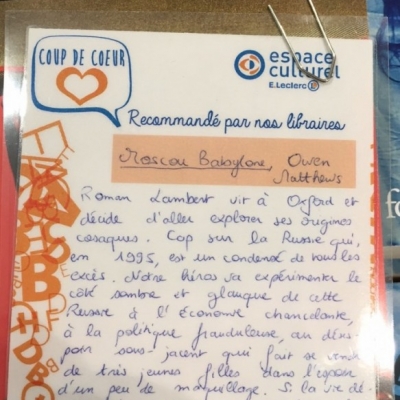 COUP DE COEUR
espace
culturel
E.Leclerc
Recommandé par nos libraires
Moscou Babylone, Owen
Matthews
Roman Lambert vit à Oxford et
décide d'aller explorer ses origines
cosaques. Cap sur la Russie qui,
en 1995, est un condensé de tous les
excès. Notre héros va expérimenter le
côté sombre et glauque de cette
Russie à l'économie chancelante,
à la politique frauduleuse, au déses-
poir sous-jacent qui fait se vendre
de très jeunes filles dans l'espoir
d'un peu de maquillage. Si la vie dé-